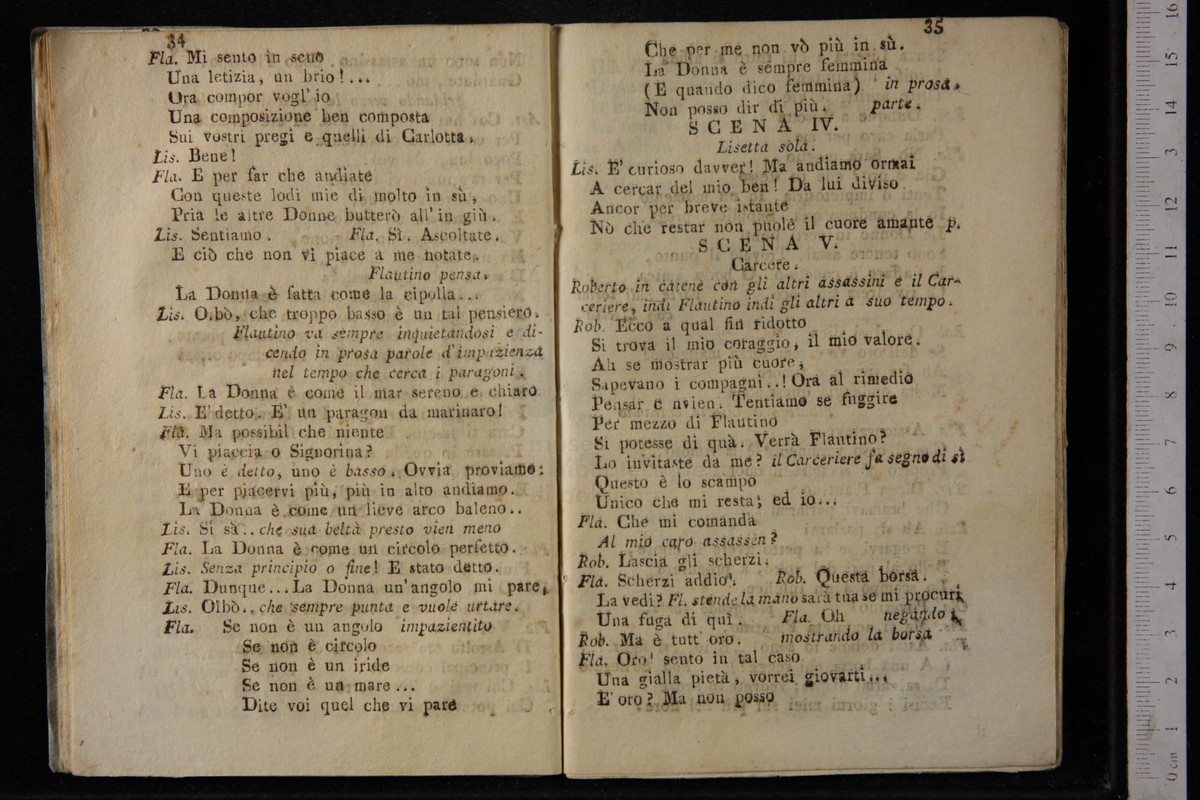 34
Fla. Mi sento in seno
Una letizia, un brio!...
Ora compor vogl' io
Una composizione ben composta
Sui vostri pregi e quelli di Carlotta.
Lis. Bene!
Fla. E per far che andiate
Con queste lodi mie di molto in sù,
Pria le altre Donne butterò all' in giù.
Lis. Sentiamo. Fla. Sì. Ascoltate.
E ciò che non vi piace a me notate.
Flautino pensa.
La Donna è fatta come la cipolla...
Lis. Oibò, che troppo basso è un tal pensiero.
Flautino va sempre inquietandosi e di-
cendo in prosa parole d'impazienza
nel tempo che cerca i paragoni.
Fla. La Donna è come il mar sereno e chiaro
Lis. E' detto. E' un paragon da marinaro!
Fla. Ma possibil che niente
Vi piaccia o Signorina?
Uno è detto, uno è basso. Ovvia proviamo:
E per piacervi più, più in alto andiamo.
La Donna è come un lieve arco baleno..
Lis. Si sà.. che sua beltà presto vien meno
Fla. La Donna è come un circolo perfetto.
Lis. Senza principio o fine! E stato detto.
Fla. Dunque...La Donna un' angolo mi pare,
Lis. Oibò.. che sempre punta e vuole urtare.
Fla. Se non è un angolo impazientito
Se non è circolo
Se non è un iride
Se non è un mare...
Dite voi quel che vi pare
35
Che per me non vò più in sù.
La Donna è sempre femmina
(E quando dico femmina) in prosa.
Non posso dir di più. parte.
SCENA IV.
Lisetta sola.
Lis. E' curioso davver! Ma andiamo ormai
A cercar del mio ben! Da lui diviso
Ancor per breve istante
Nò che restar non puole il cuore amante p.
SCENA V.
Carcere.
Roberto in catene con gli altri assassini e il Car-
ceriere, indi Flautino indi gli altri a suo tempo.
Rob. Ecco a qual fin ridotto
Si trova il mio coraggio, il mio valore.
Ah se mostrar più cuore,
Sapevano i compagni..! Ora al rimedio
Pensar convien. Tentiamo se fuggire
Per mezzo di Flautino
Si potesse di quà. Verrà Flautino?
Lo invitaste da me? il Carceriere fa segno di sì
Questo è lo scampo
Unico che mi resta; ed io...
Fla. Che mi comanda
Al mio caro assassen?
Rob. Lascia gli scherzi.
Fla. Scherzi addio. Rob. Questa borsa.
La vedi? Fl. stende la mano sarà tua se mi procuri
Una fuga di quì. Fla. Oh negando
Rob. Ma è tutt' oro. mostrando la borsa
Fla. Oro! sento in tal caso
Una gialla pietà, vorrei giovarti...
E' oro? Ma non posso